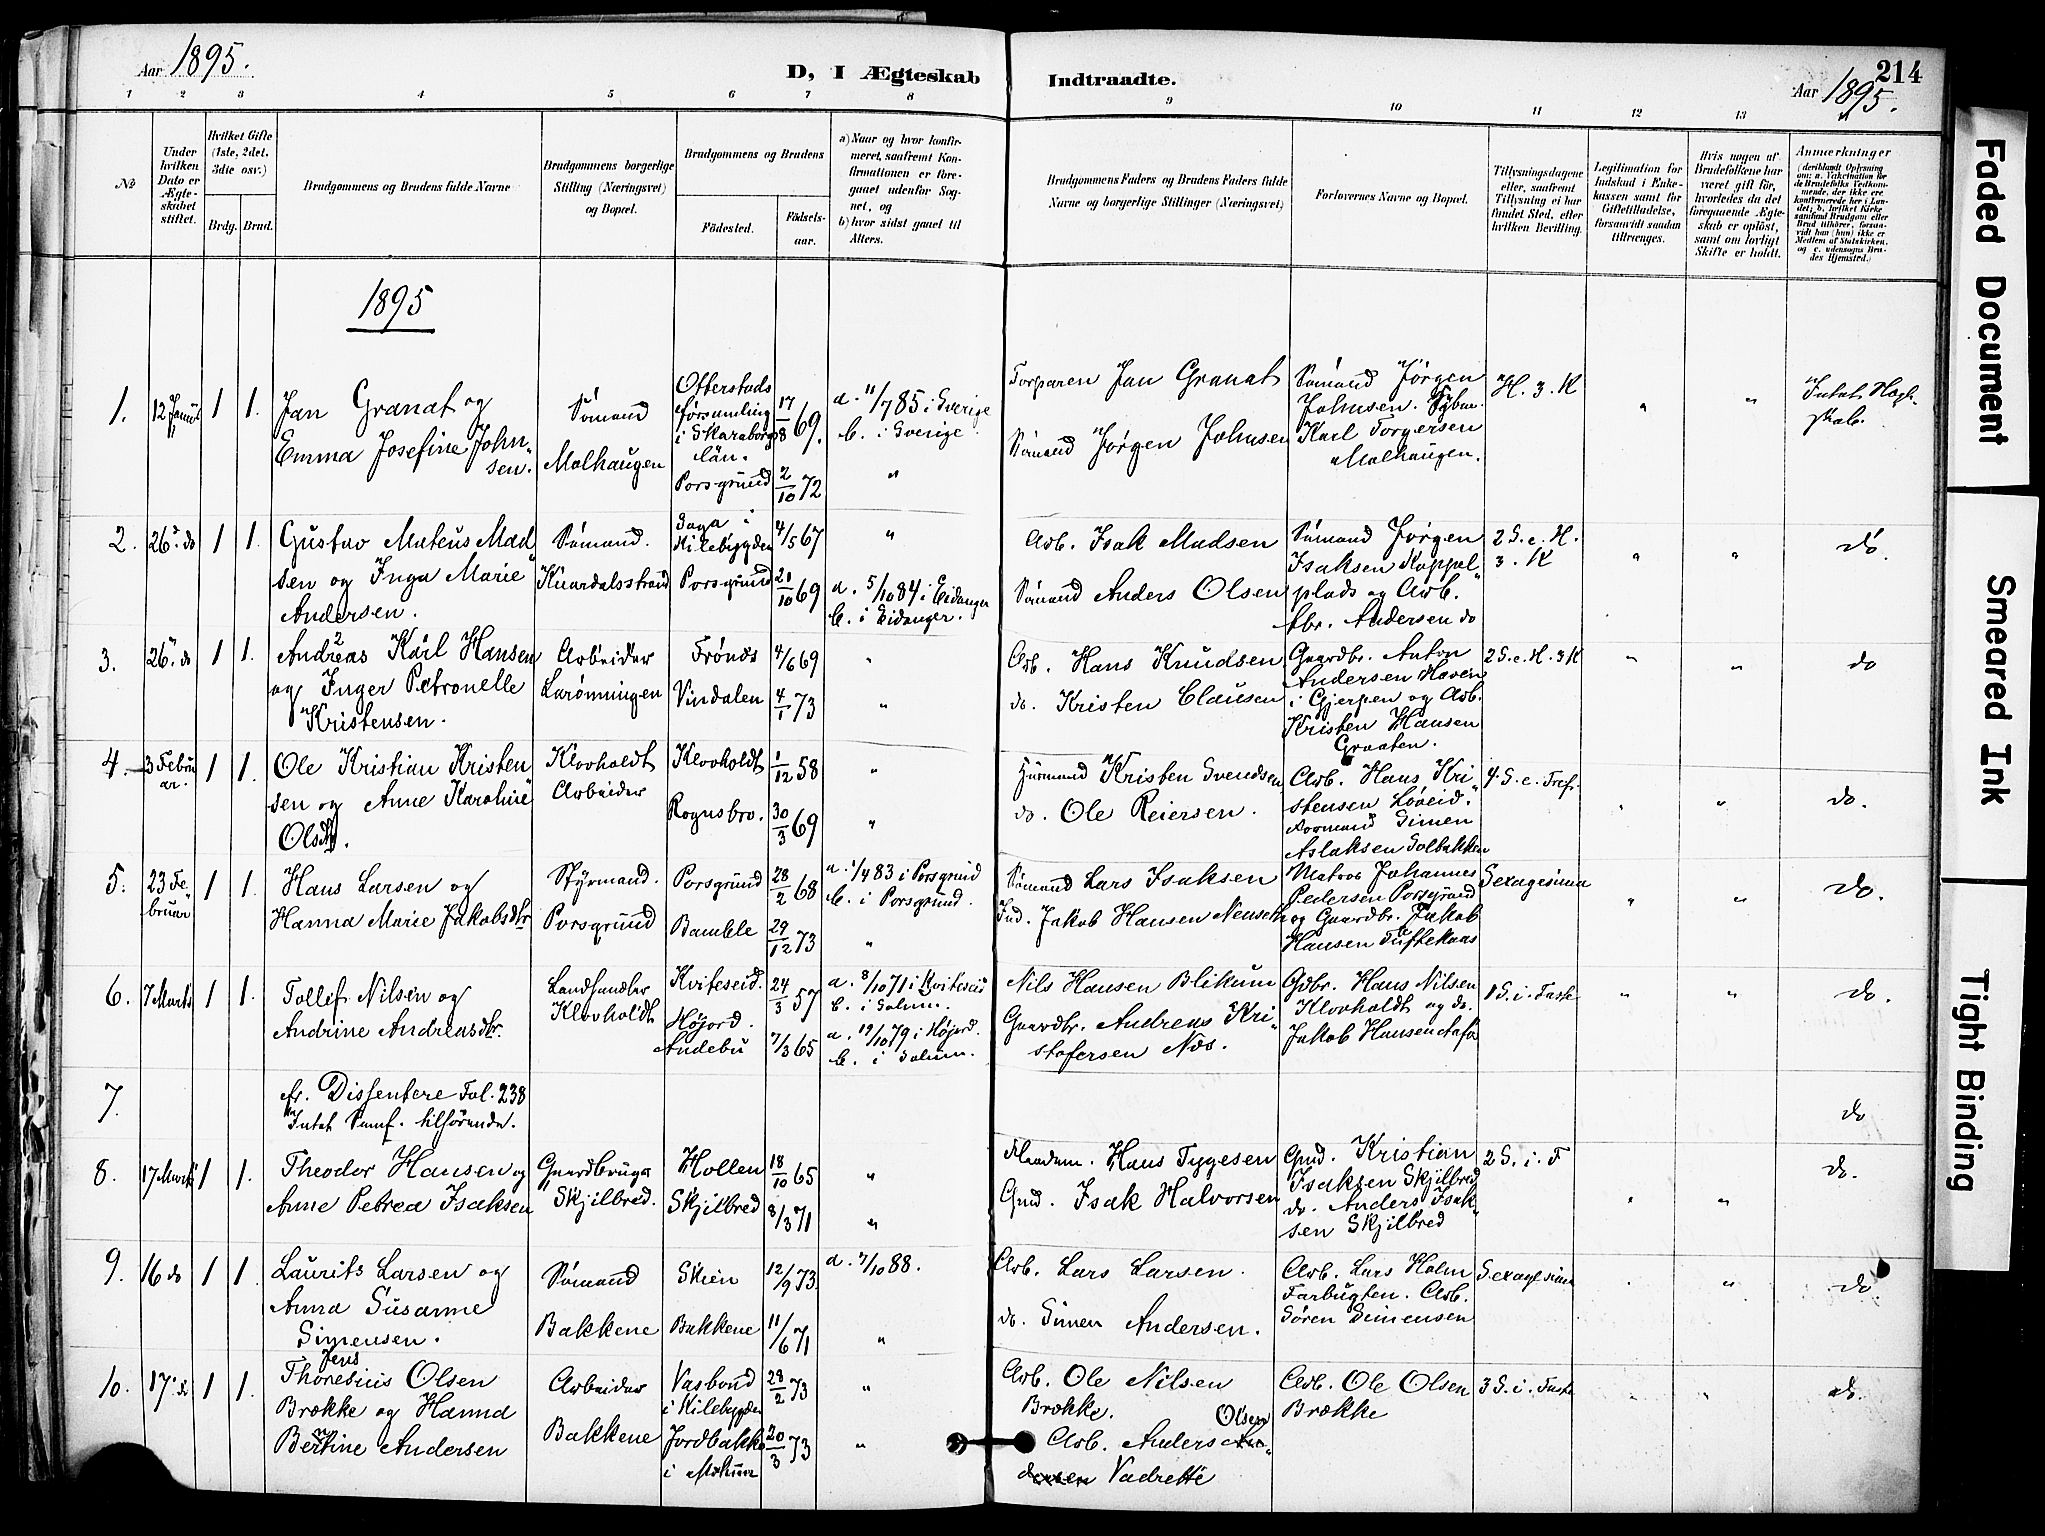 Aar 1895.
D, I Ægteskab Indtraadte.
214
Aar 1895.
1 2 3 4 5 6 7 8 9 10 11 12 13
No
Under hvilken Dato er Ægteskabet stiftet.
Hvilket Gifte (1ste, 2det, 3die osv.)
Brdg. Brud.
Brudgommens og Brudens fulde Navne
Brudgommens borgerlige Stilling (Næringsvei) og Bopæl.
Brudgommens og Brudens
Fødested.
Fødselsaar.
a) Naar og hvor konfirmeret, saafremt Konfirmationen er foregaaet udenfor Sognet, og
b) hvor sidst gaaet til Alters.
Brudgommens Faders og Brudens Faders fulde Navne og borgerlige Stillinger (Næringsvei)
Forlovernes Navne og Bopæl.
Tillysningsdagene eller, saafremt Tillysning ei har fundet Sted, efter hvilken Bevilling.
Legitimation for Indskud i Enkekassen samt for Giftetilladelse, forsaavidt saadan tiltrænges.
Hvis nogen af Brudefolkene har været gift før, hvorledes da det foregaaende Ægteskab er opløst, samt om lovligt Skifte er holdt.
Anmærkninger
(deriblandt Oplysning om: a. Vakcination for de Brudefolks Vedkommende, der ikke ere konfirmerede her i Landet; b. hvilket Kirkesamfund Brudgom eller Brud tilhører, forsaavidt han (hun) ikke er Medlem af Statskirken, og c. udensogns Brudes Hjemsted.)
1895
1. 12 Januar 1 1.
Jan Granat og
Emma Josefine Johnsen.
Sømand
Molhaugen
Otterstads församling i Skaraborgs län.
17/8 69.
Porsgrund 2/10 72
a. 11/7 85 i Sverige
b. i Sverige.
"
Torparen Jan Granat
Sømand Jørgen Johnsen
Sømand Jørgen
Johnsen.
Karl Torgersen
Molhaugen.
H. 3. K
" "
Intet Slægtskab.
2. 26. do 1 1.
Gustav Mateus Madsen og Inga Marie
Andersen.
Sømand.
Knardalsstrand
i Kilebygden 4/5 67
Porsgrund 20/10 69
"
a. 5/10 84 i Eidanger
b. i Eidanger.
Arb. Isak Madsen
Sømand Anders Olsen
Sømand Jørgen
Isaksen Kappelplads og Arb.
Abr. Andersen do
2 S. e. H.
3. K
" "
do.
3. 26. do 1 1.
Andreas Karl Hansen
og Inger Petronelle
Kristensen.
Arbeider
Larønningen
Frønes 4/6 69
Vindalen 4/1 73
" "
Arb. Hans Knudsen
do. Kristen Clausen
Gaardbr. Anton
Andersen Haven
i Gjerpen og Arb.
Kristen Hansen
Graaten.
2 S. e. H. 3 K
" "
do
4. 3 Februar. 1 1.
Ole Kristian Kristensen og Anne Karoline
Olsdtr.
Klovholdt
Arbeider
Klovholdt 1/12 58
Rognsbro. 30/3 69
" "
Husmand Kristen Svendsen
do. Ole Reiersen.
Arb. Hans Kristensen Løveid.
Formand Simen
Aslaksen Solbakken
4 S. e. Tref.
" "
do.
5. 23 Februar 1 1.
Hans Larsen og
Hanna Marie Jakobsdtr
Styrmand.
Porsgrund
Porsgrund 28/2 68
Bamble 29/12 73
a. 1/4 83 i Porsgrund
b. i Porsgrund.
"
Sømand Lars Isaksen
Ind. Jakob Hansen Nenseth
Matros Johannes
Pedersen Porsgrund
og Gaardbr. Jakob
Hansen Tuftekaas
Sexagesima
" "
do.
6. 7 Marts 1 1.
Tollef Nilsen og
Andrine Andreasdtr.
Landhandler
Klovholdt
Kviteseid. 24/3 57
Højord.
Andebu 7/3 65
a. 8/10 71 i Kviteseid
b. i Solum.
a. 12/10 79 i Højord.
b. i Solum.
Nils Hansen Blikum
Gaardbr. Andreas Kristofersen Næs.
Gdbr. Hans Nilsen
Klovholdt og do.
Jakob Hansen
1 S. i. Faste
" "
do.
7.
cfr. Dissentere Fol. 238
Intet Samf. tilhørende.
do
8. 17 Marts 1 1.
Theodor Hansen og
Anne Petrea Isaksen
Gaardbruger
Skjilbred.
Hollen 18/10 65
Skjilbred 8/3 71
" "
Hans Tygesen
Gmd. Isak Halvorsen
Gmd. Kristian
Isaksen Skjilbred
do. Anders Isaksen Skjilbred
2 S. i. F
" "
do.
9. 16 do 1 1.
Laurits Larsen og
Anna Susanne
Simensen.
Sømand
Bakkene
Skien 12/9 73.
Bakkene 11/6 71
a. 7/10 88.
"
Arb. Lars Larsen.
do. Simen Andersen.
Arb. Lars Holm
Farbugten. Arb.
Søren Simensen
Sexagesima
"
do.
10. 17. d 1 1.
Jens
Thoresius Olsen
Brække og Hanna
Bertine Andersen
Arbeider
Bakkene
Vasbond
i Kilebygden 28/2 73
Jordbakke
i 20/3 73
" "
Arb. Ole Nilsen
Brække.
Olsen
Arb. Anders Andersen Vadrette
Arb. Ole Olsen
Brække
3 S. i. Faste
" "
do.
Faded Document
Smeared Ink
Tight Binding